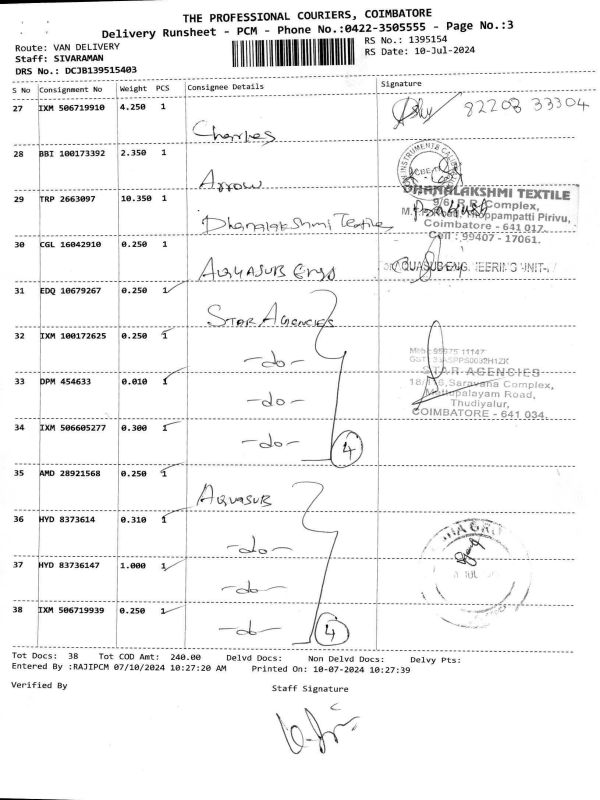 THE PROFESSIONAL COURIERS, COIMBATORE
Delivery Runsheet - PCM - Phone No.:0422-3505555 - Page No.:3
Route: VAN DELIVERY
RS No.: 1395154
Staff: SIVARAMAN
RS Date: 10-Jul-2024
DRS No.: DCJB139515403
S No Consignment No Weight PCS Consignee Details Signature
27 IXM 506719910 4.250 1
82203 33304
28 BBI 100173392 2.350 1
Arrow
29 TRP 2663097 10.350 1
Dhanalakshmi Textile
DHANALAKSHMI TEXTILE
Complex,
Thoppampatti Pirivu,
Coimbatore - 641 017.
Cell : 99407 - 17061.
30 CGL 16042910 0.250 1
AQUASUB Engg
31 EDQ 10679267 0.250 1
STAR AGENCIES
32 IXM 100172625 0.250 1
-do-
33 DPM 454633 0.010 1
-do-
STAR AGENCIES
Saravana Complex,
Mettupalayam Road,
Thudiyalur,
COIMBATORE - 641 034.
34 IXM 506605277 0.300 1
-do- 4
35 AMD 28921568 0.250 1
AQUASUB
36 HYD 8373614 0.310 1
-do-
37 HYD 83736147 1.000 1
-do-
38 IXM 506719939 0.250 1
-do- 4
Tot Docs: 38 Tot COD Amt: 240.00 Delvd Docs: Non Delvd Docs: Delvy Pts:
Entered By :RAJIPCM 07/10/2024 10:27:20 AM Printed On: 10-07-2024 10:27:39
Verified By Staff Signature